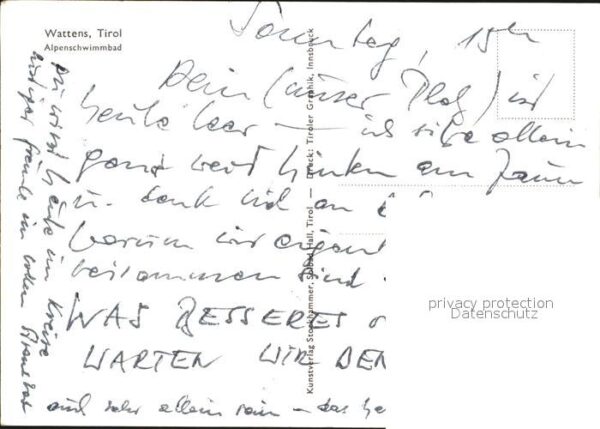 Wattens, Tirol
Alpenschwimmbad
Sonntag, 15h
Dein (unser Platz) ist
heute leer — ich sitze allein
ganz weit hinten am Zaun
u. denk
warum wir eigent
beisammen sind
WAS BESSERES
WARTEN WIR DEN
und sehr allein sein – das
Du wirst heute im Kreise
lustiger Freunde im vollen
Kunstverlag Stockhammer, Solbad Hall, Tirol — Druck: Tiroler Graphik, Innsbruck
privacy protection
Datenschutz